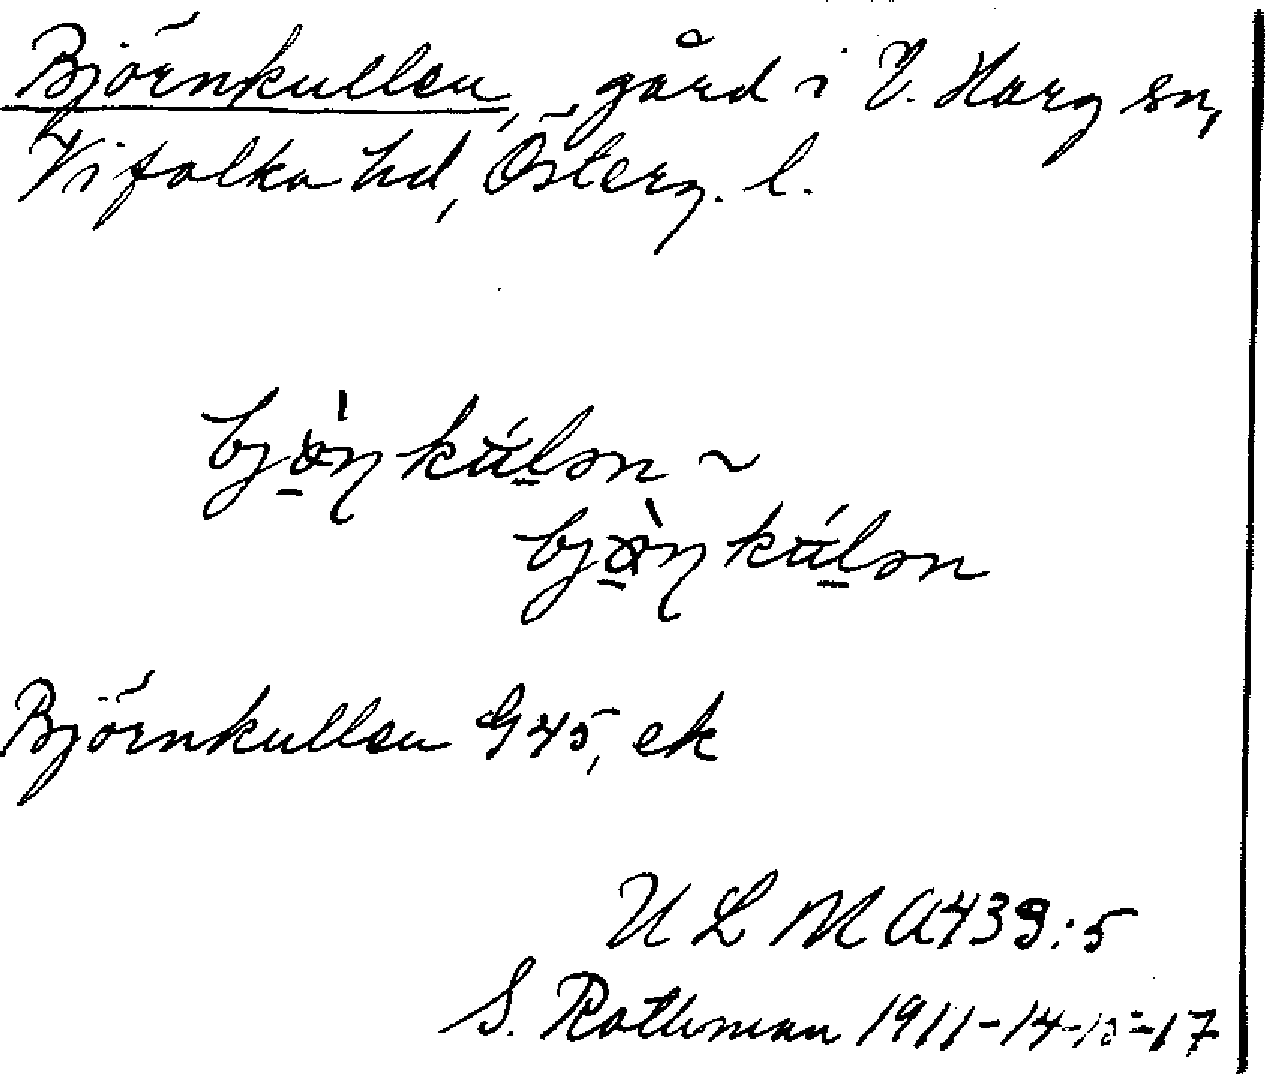 Björnkullen, gård i V. Harg sn,
Vifolka hd, Österg. l.
bjö̀ṇkúlən ~
bjö̀ṇkúlən
Björnkullen G 45, ek
U L M A 439:5
S. Rothman 1911-14-15-17